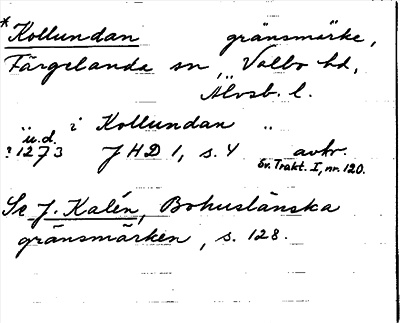 *Kollundan gränsmärke,
Färgelanda sn, Valbo hd,
Älvsb. l.
"i Kollundan"
ä.d.
?1273 JHD 1, s. 4 avkr.
Sv. Trakt. I, nr. 120.
Se J. Kalén, Bohuslänska
gränsmärken, s. 128.